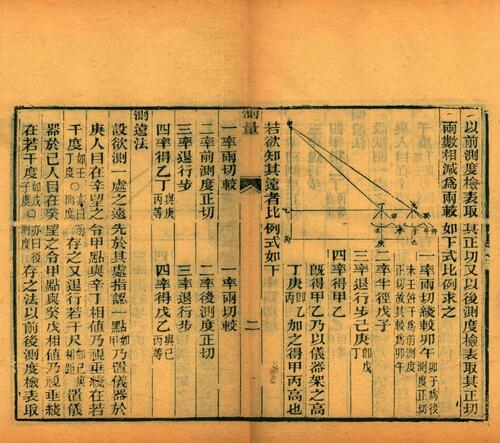 以前測度檢表取其正切又以後測度檢表取其正切
兩數相減為兩較如下式比例求之
一率兩切線較卯午
卯子為後測度正切
未壬等于為前測度
正切故其較為卯午
二率半徑戊子
三率退行步己庚丁即戊
四率得甲乙
既得甲乙乃以儀器架之高
丁庚即戊乙加之得甲丙高也
若欲知其遠者比例式如下
測量
二
一率兩切較
二率前測度正切
三率退行步
四率得乙丁與庚丙等
一率兩切較
二率後測度正切
三率退行步
四率得戊乙與己丙等
測遠法
設欲測一處之遠先於其處指認一點如甲乃置儀器於
庚人目在辛望之令甲點與辛丁相值乃視垂綫在若
干度如壬丁度亦曰前測度存之又退行若干尺如己庚距置儀
器於己人目在癸望之令甲點與癸戊相值乃視垂綫
在若干度如戊子度亦曰後測度存之法以前後測度檢表取